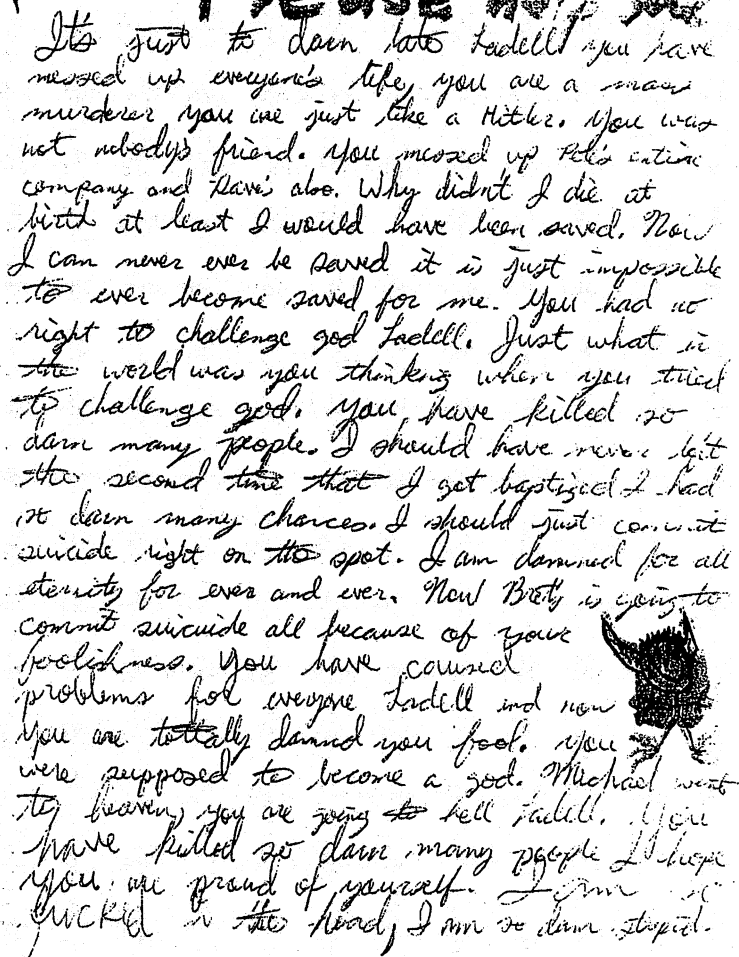 Please Help Me
It's just to darn late Ladell you have
messed up everyone's life, you are a mass
murderer you are just like a Hitler. You was
not nobody's friend. You messed up Pete's entire
company and Dave's also. Why didn't I die at
birth at least I would have been saved. Now
I can never ever be saved it is just impossible
to ever become saved for me. You had no
right to challenge god Ladell. Just what in
the world was you thinking when you tried
to challenge god. You have killed so
darn many people. I should have never left
the second time that I got baptized I had
so darn many chances. I should just commit
suicide right on the spot. I am damned for all
eternity for ever and ever. Now Brett is going to
commit suicuide all because of your
foolishness. You have caused
problems for everyone Ladell and now
you are tottally damned you fool. You
were supposed to become a god. Michael went
to heaven, you are going to hell Ladell. You
have killed so darn many people I hope
you are proud of yourself. I am so
fucked in the head, I am so darn stupid.